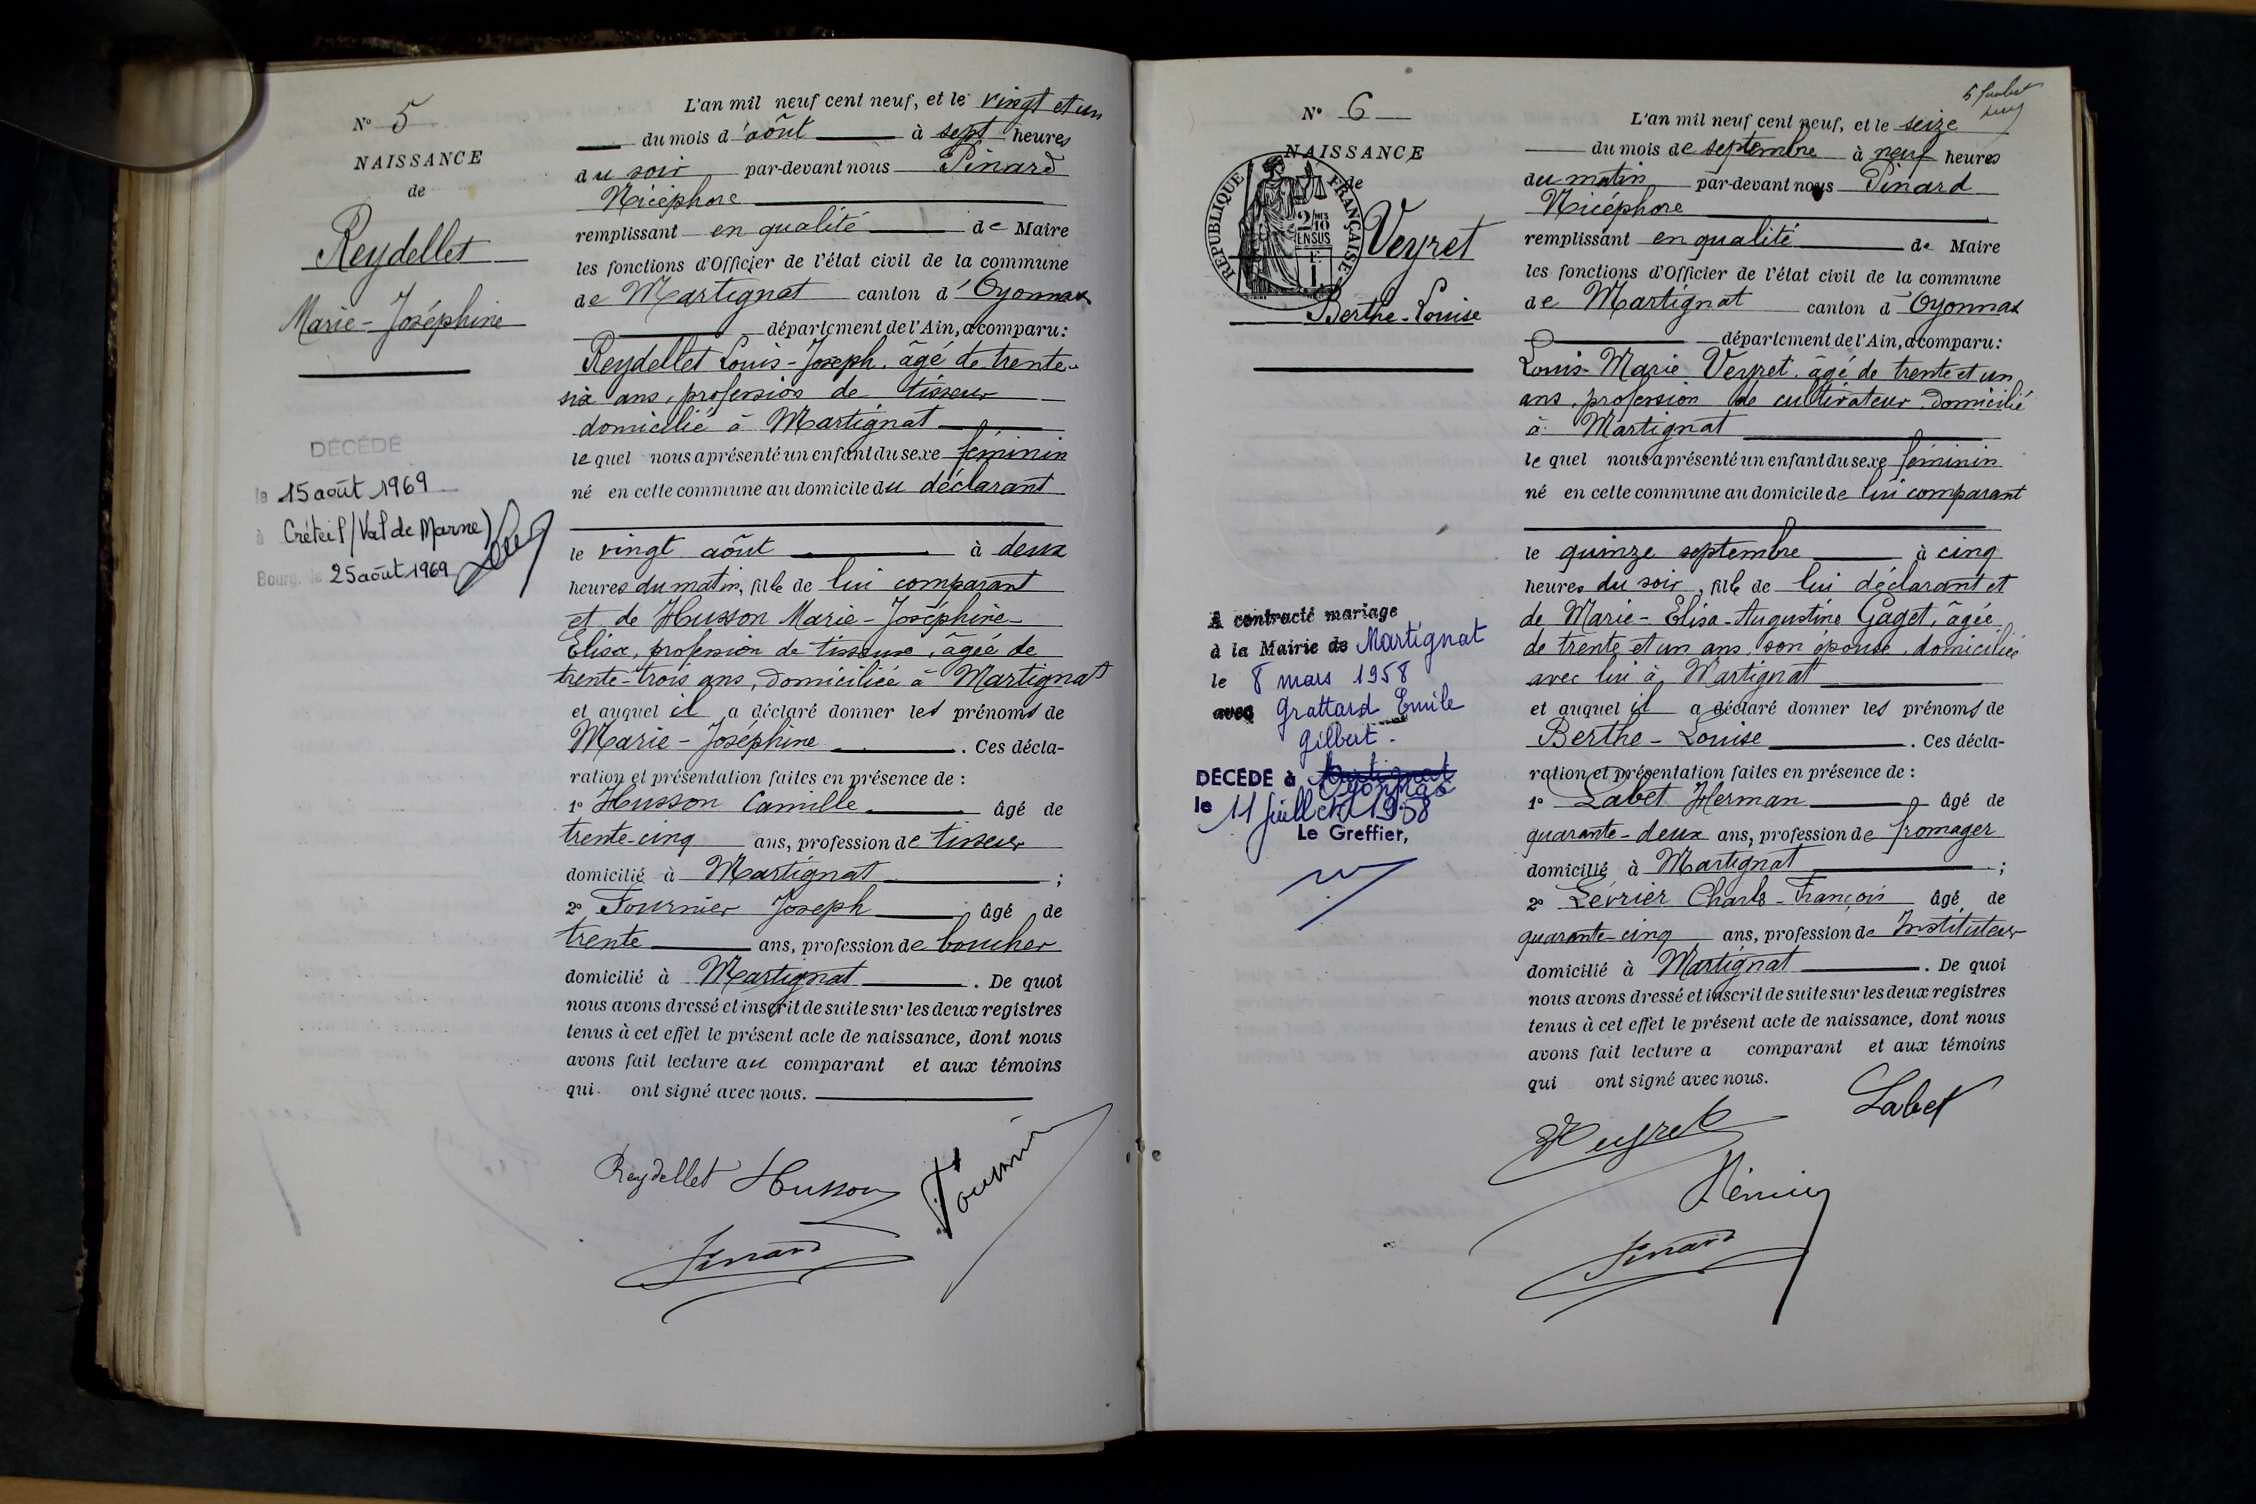 N° 5
NAISSANCE
de
Reydellet
Marie-Joséphine
DÉCÉDÉ
le 15 août 1969
à Créteil (Val de Marne)
Bourg, le 25 août 1969
L'an mil neuf cent neuf, et le vingt et un
du mois d'août à sept heures
du soir par-devant nous Pinard
Nicéphore
remplissant en qualité de Maire
les fonctions d'Officier de l'état civil de la commune
de Martignat canton d'Oyonnax
département de l'Ain, a comparu:
Reydellet Louis-Joseph, âgé de trente-
six ans, profession de tisseur
domicilié à Martignat
lequel nous a présenté un enfant du sexe féminin
né en cette commune au domicile du déclarant
le vingt août à deux
heures du matin, fille de lui comparant
et de Husson Marie-Joséphine-
Elisa, profession de tisseuse, âgée de
trente-trois ans, domiciliée à Martignat
et auquel il a déclaré donner les prénoms de
Marie-Joséphine. Ces décla-
ration et présentation faites en présence de :
1° Husson Camille âgé de
trente-cinq ans, profession de tisseur
domicilié à Martignat ;
2° Fournier Joseph âgé de
trente ans, profession de boucher
domicilié à Martignat. De quoi
nous avons dressé et inscrit de suite sur les deux registres
tenus à cet effet le présent acte de naissance, dont nous
avons fait lecture au comparant et aux témoins
qui ont signé avec nous.
Reydellet Husson Fournier
Pinard
N° 6
NAISSANCE
de
RÉPUBLIQUE FRANÇAISE
2/10
EN SUS
Veyret
Berthe-Louise
A contracté mariage
à la Mairie de Martignat
le 8 mars 1958
avec Grattard Emile
Gilbert.
DÉCÉDÉ à Martignat
Oyonnax
le 11 juillet 1958
Le Greffier,
L'an mil neuf cent neuf, et le seize
du mois de septembre à neuf heures
du matin par-devant nous Pinard
Nicéphore
remplissant en qualité de Maire
les fonctions d'Officier de l'état civil de la commune
de Martignat canton d'Oyonnax
département de l'Ain, a comparu:
Louis-Marie Veyret, âgé de trente et un
ans, profession de cultivateur, domicilié
à Martignat
lequel nous a présenté un enfant du sexe féminin
né en cette commune au domicile de lui comparant
le quinze septembre à cinq
heures du soir, fille de lui déclarant et
de Marie-Elisa-Augustine Gaget, âgée
de trente et un ans, son épouse, domiciliée
avec lui à Martignat
et auquel il a déclaré donner les prénoms de
Berthe-Louise. Ces décla-
ration et présentation faites en présence de :
1° Labet Herman âgé de
quarante-deux ans, profession de fromager
domicilié à Martignat ;
2° Lévrier Charles-François âgé de
quarante-cinq ans, profession de Instituteur
domicilié à Martignat. De quoi
nous avons dressé et inscrit de suite sur les deux registres
tenus à cet effet le présent acte de naissance, dont nous
avons fait lecture a comparant et aux témoins
qui ont signé avec nous.
Veyret Labet
Pinard